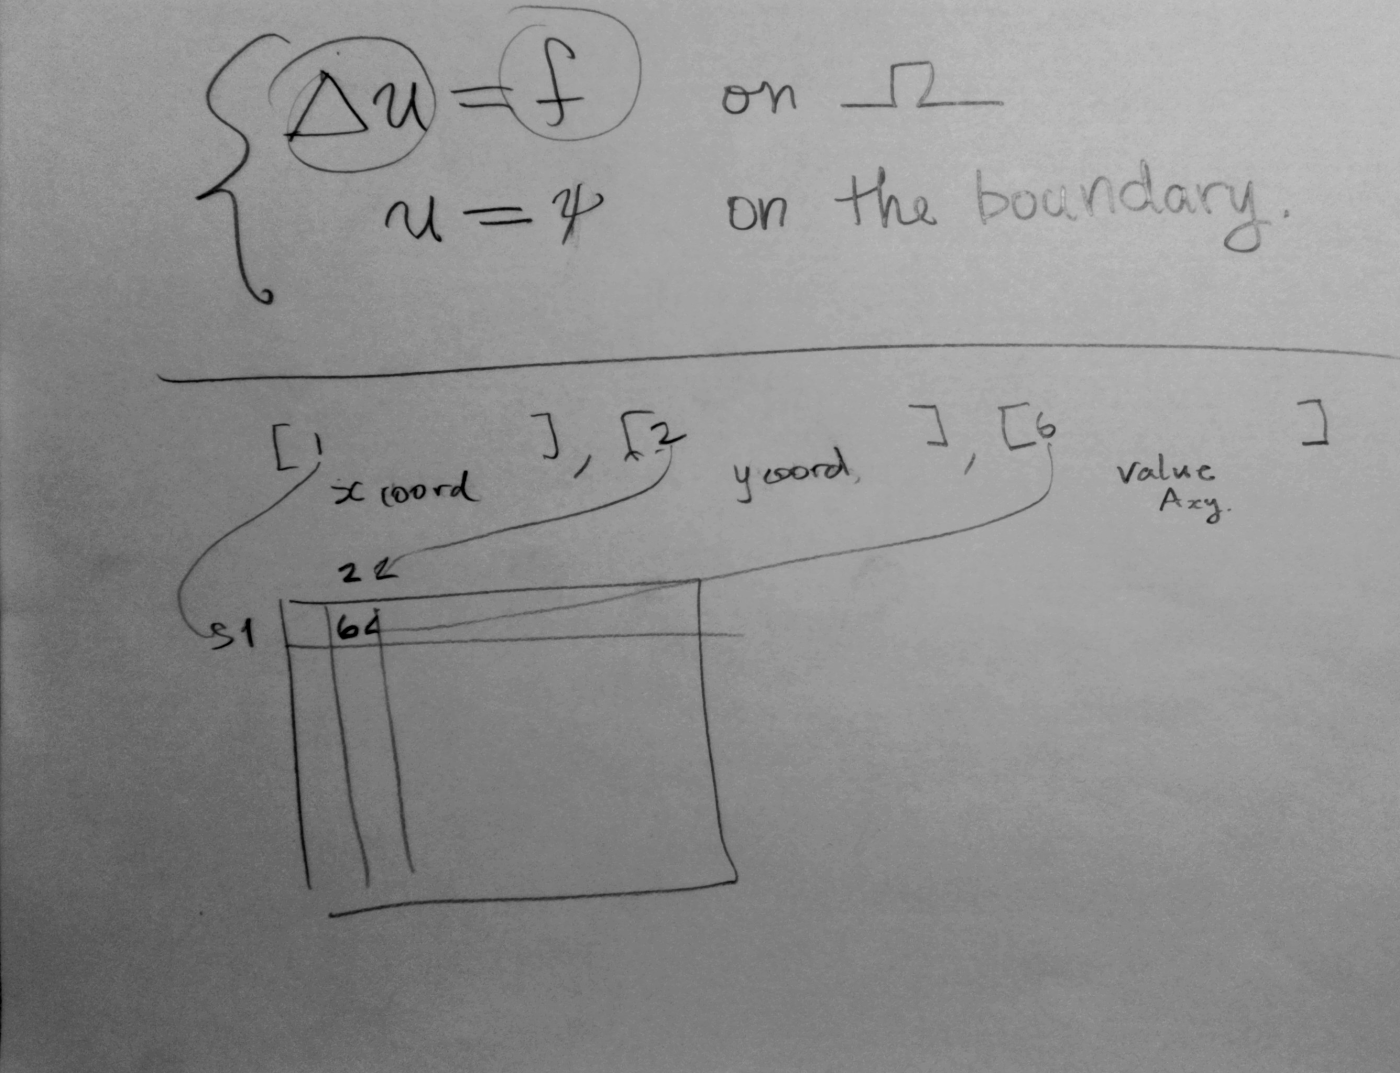 Δu = f on Ω
u = ψ on the boundary.
[1 ], [2 ], [6 ]
x coord y coord. value
Axy.
2
1
6